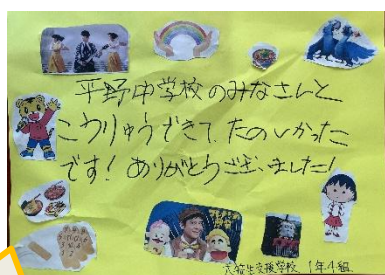 平野中学校のみなさんと
こうりゅうできて、たのしかった
です！ありがとうございました！
支援学校 1年4組